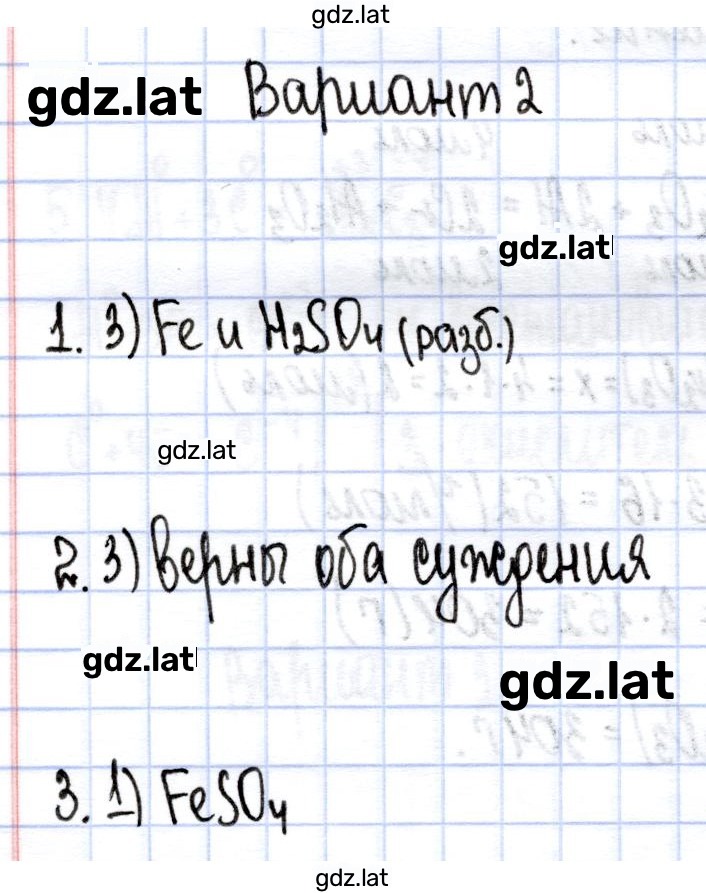 gdz.lat
gdz.lat Вариант 2
gdz.lat
1. 3) Fe и H₂SO₄ (разб.)
gdz.lat
2. 3) верны оба суждения
gdz.lat
gdz.lat
3. 1) FeSO₄
gdz.lat